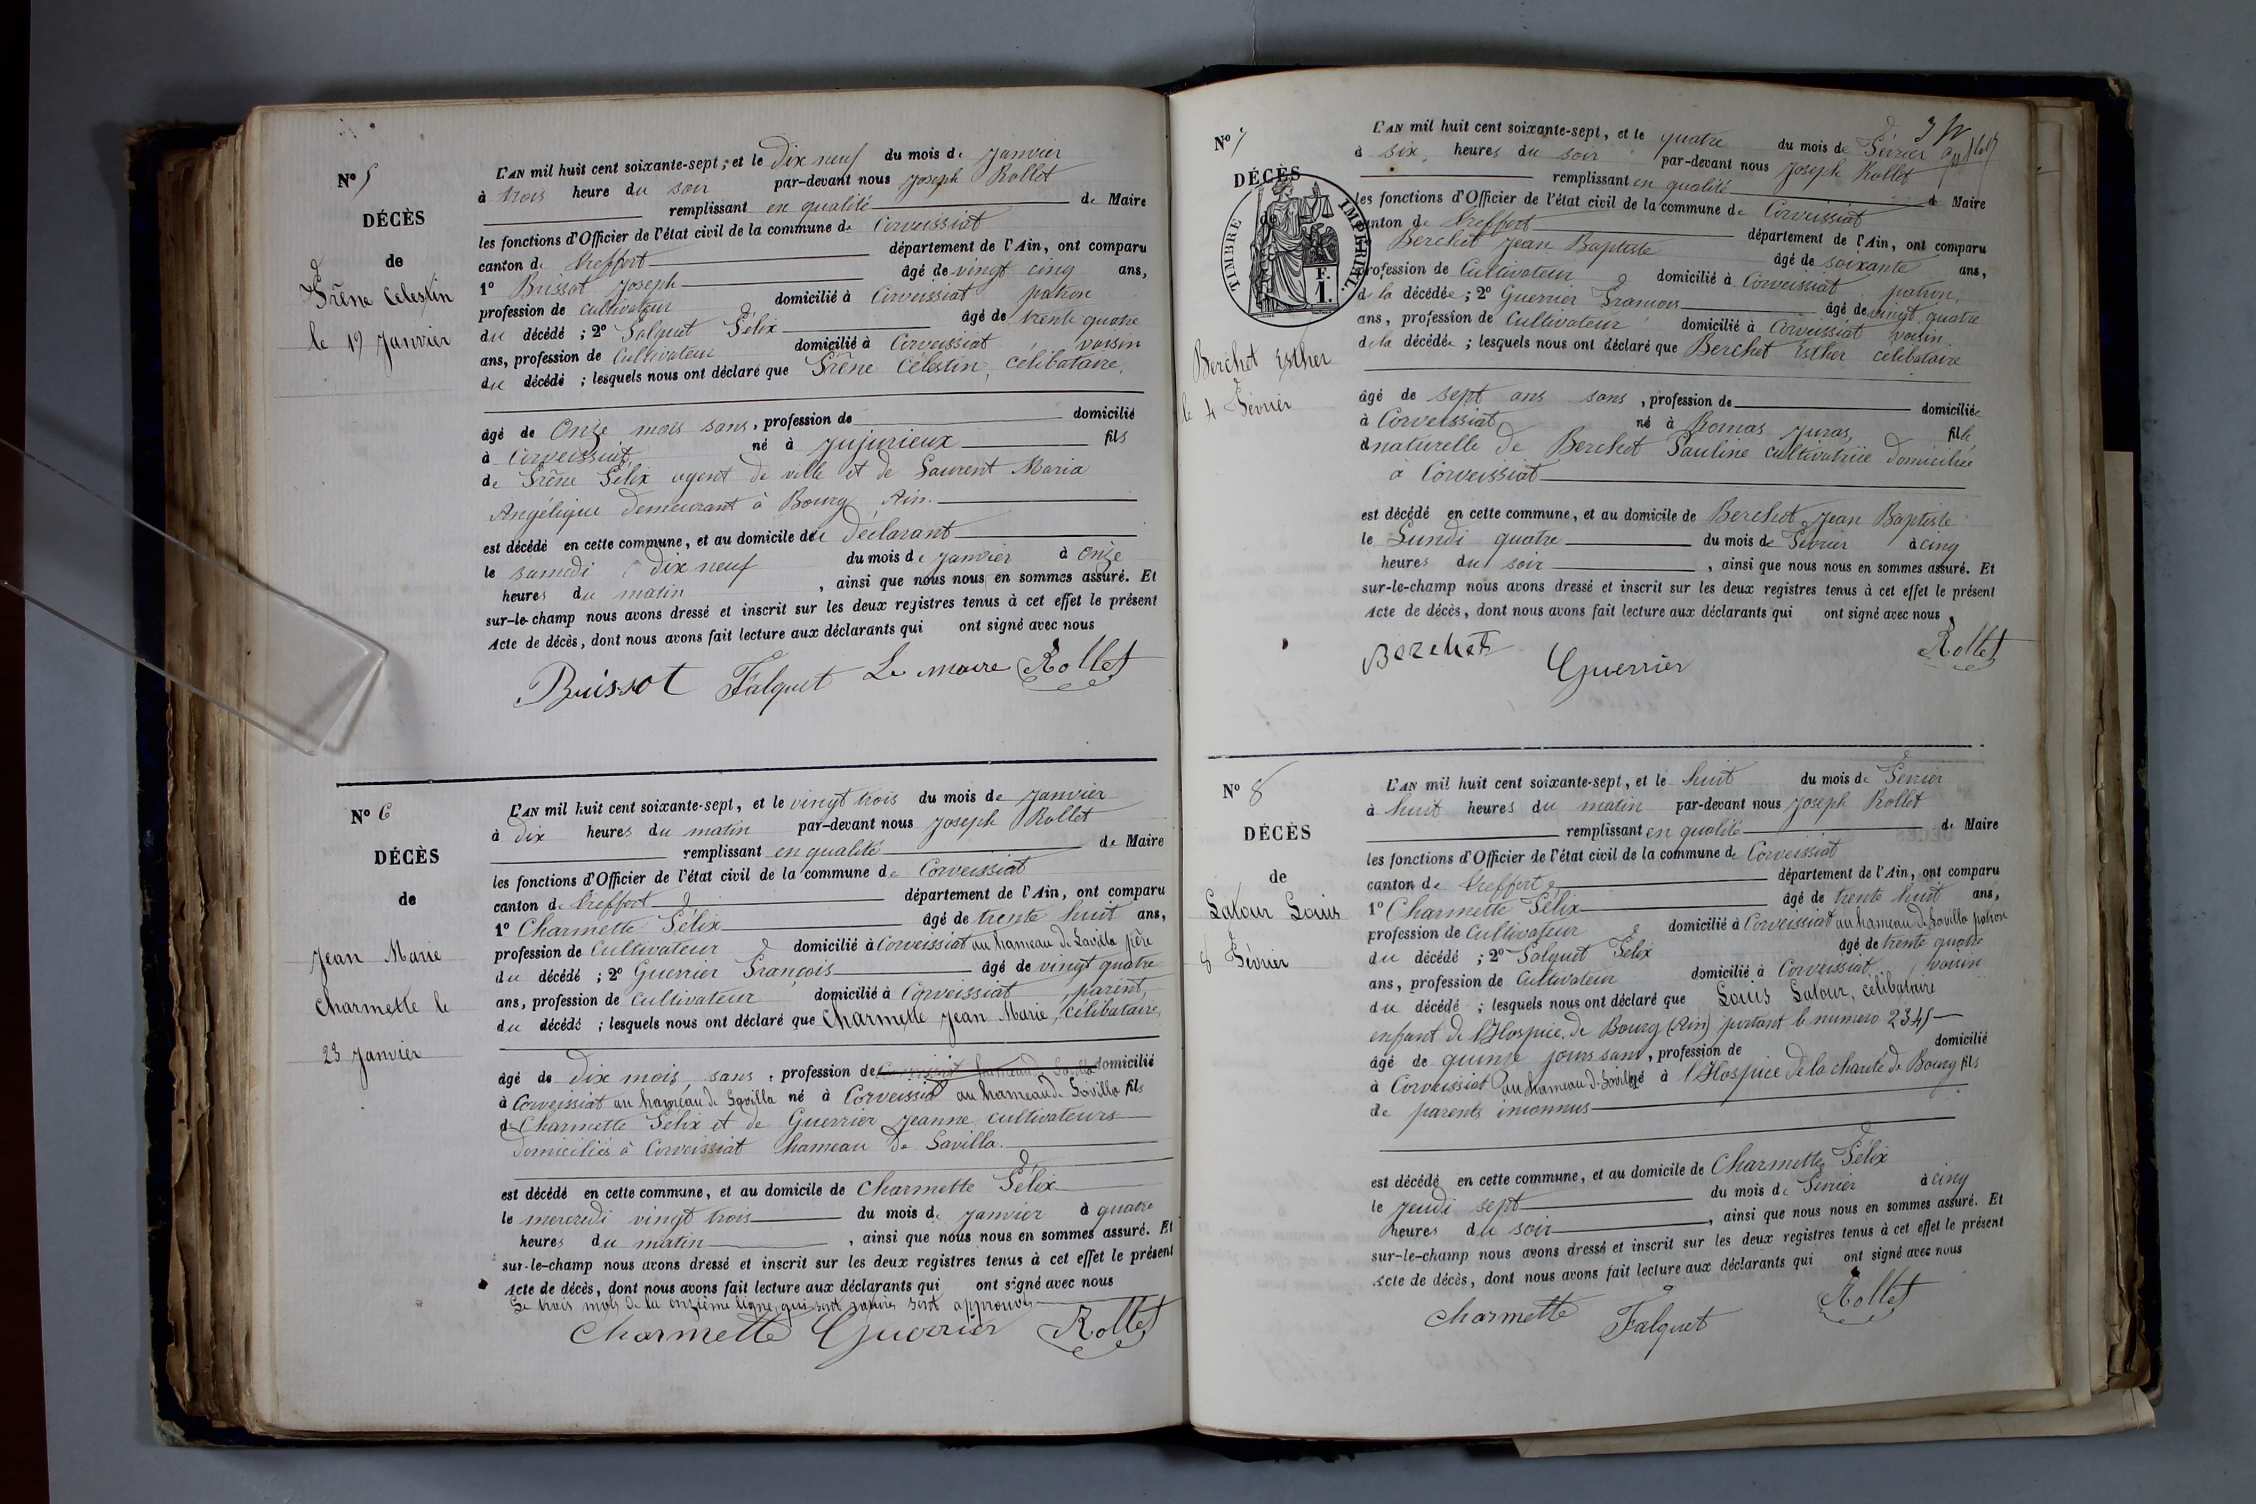 N° 5
DÉCÈS
de
Frêne Celestin
le 19 Janvier
L'AN mil huit cent soixante-sept ; et le Dix neuf du mois de Janvier
à trois heure du soir par-devant nous Joseph Rollet
remplissant en qualité de Maire
les fonctions d'Officier de l'état civil de la commune de Corveissiat
canton de Treffort département de l'Ain, ont comparu
1° Buissot Joseph âgé de vingt cinq ans,
profession de cultivateur domicilié à Corveissiat patron
du décédé ; 2° Falquet Félix âgé de trente quatre
ans, profession de Cultivateur domicilié à Corveissiat, voisin
du décédé ; lesquels nous ont déclaré que Frêne Célestin, célibataire,
âgé de Onze mois sans, profession de domicilié
à Corveissiat, né à Jujurieux fils
de Frêne Félix agent de ville et de Laurent Maria
Angélique demeurant à Bourg Ain.
est décédé en cette commune, et au domicile de Déclarant
le samedi dix neuf du mois de Janvier à Onze
heures du matin, ainsi que nous nous en sommes assuré. Et
sur-le-champ nous avons dressé et inscrit sur les deux registres tenus à cet effet le présent
Acte de décès, dont nous avons fait lecture aux déclarants qui ont signé avec nous
Buissot Falquet Le maire Rollet
N° 6
DÉCÈS
de
Jean Marie
Charmette le
23 Janvier
L'AN mil huit cent soixante-sept, et le vingt trois du mois de Janvier
à Dix heures du matin par-devant nous Joseph Rollet
remplissant en qualité de Maire
les fonctions d'Officier de l'état civil de la commune de Corveissiat
canton de Treffort département de l'Ain, ont comparu
1° Charmette Félix âgé de trente huit ans,
profession de Cultivateur domicilié à Corveissiat au hameau de Lavilla père
du décédé ; 2° Guerrier François âgé de vingt quatre
ans, profession de Cultivateur domicilié à Corveissiat, parent,
du décédé ; lesquels nous ont déclaré que Charmette Jean Marie, célibataire,
âgé de dix mois, sans, profession de domicilié
à Corveissiat au hameau de Lavilla né à Corveissiat au hameau de Lavilla fils
de Charmette Félix et de Guerrier Jeanne cultivateurs
domiciliés à Corveissiat hameau de Lavilla.
est décédé en cette commune, et au domicile de Charmette Félix
le mercredi vingt trois du mois de Janvier à quatre
heures du matin, ainsi que nous nous en sommes assuré. Et
sur-le-champ nous avons dressé et inscrit sur les deux registres tenus à cet effet le présent
Acte de décès, dont nous avons fait lecture aux déclarants qui ont signé avec nous
Le trois mots de la onzième ligne, qui sont rayés sont approuvés
Charmette Guerrier Rollet
N° 7
DÉCÈS
de
TIMBRE IMPERIAL.
F.
1.
Berchet Esther
le 4 Février
L'AN mil huit cent soixante-sept, et le quatre du mois de Février
à six, heures du soir par-devant nous Joseph Rollet
remplissant en qualité de Maire
les fonctions d'Officier de l'état civil de la commune de Corveissiat
canton de Treffort département de l'Ain, ont comparu
Berchet Jean Baptiste âgé de soixante ans,
profession de Cultivateur domicilié à Corveissiat patron,
de la décédée ; 2° Guerrier François âgé de vingt quatre
ans, profession de Cultivateur domicilié à Corveissiat voisin
de la décédée ; lesquels nous ont déclaré que Berchet Esther célibataire
âgé de sept ans sans, profession de domiciliée
à Corveissiat né à Romas Juras, fille
naturelle de Berchet Pauline cultivatrice domiciliée
à Corveissiat
est décédé en cette commune, et au domicile de Berchet Jean Baptiste
le Lundi quatre du mois de Février à cinq
heures du soir, ainsi que nous nous en sommes assuré. Et
sur-le-champ nous avons dressé et inscrit sur les deux registres tenus à cet effet le présent
Acte de décès, dont nous avons fait lecture aux déclarants qui ont signé avec nous
Berchet Guerrier Rollet
N° 8
DÉCÈS
de
Latour Louis
8 Février
L'AN mil huit cent soixante-sept, et le huit du mois de Février
à huit heures du matin par-devant nous Joseph Rollet
remplissant en qualité de Maire
les fonctions d'Officier de l'état civil de la commune de Corveissiat
canton de Treffort département de l'Ain, ont comparu
1° Charmette Félix âgé de trente huit ans,
profession de Cultivateur domicilié à Corveissiat au hameau de Lavilla patron
du décédé ; 2° Falquet Félix âgé de trente quatre
ans, profession de Cultivateur domicilié à Corveissiat, voisin
du décédé ; lesquels nous ont déclaré que Louis Latour, célibataire
enfant de l'Hospice de Bourg (Ain) portant le numero 2345
âgé de quinze jours sans, profession de domicilié
à Corveissiat au hameau de Lavilla né à l'Hospice de la charité de Bourg fils
de parents inconnus
est décédé en cette commune, et au domicile de Charmette Félix
le Jeudi sept du mois de Février à cinq
heures du soir, ainsi que nous nous en sommes assuré. Et
sur-le-champ nous avons dressé et inscrit sur les deux registres tenus à cet effet le présent
Acte de décès, dont nous avons fait lecture aux déclarants qui ont signé avec nous
Charmette Falquet Rollet